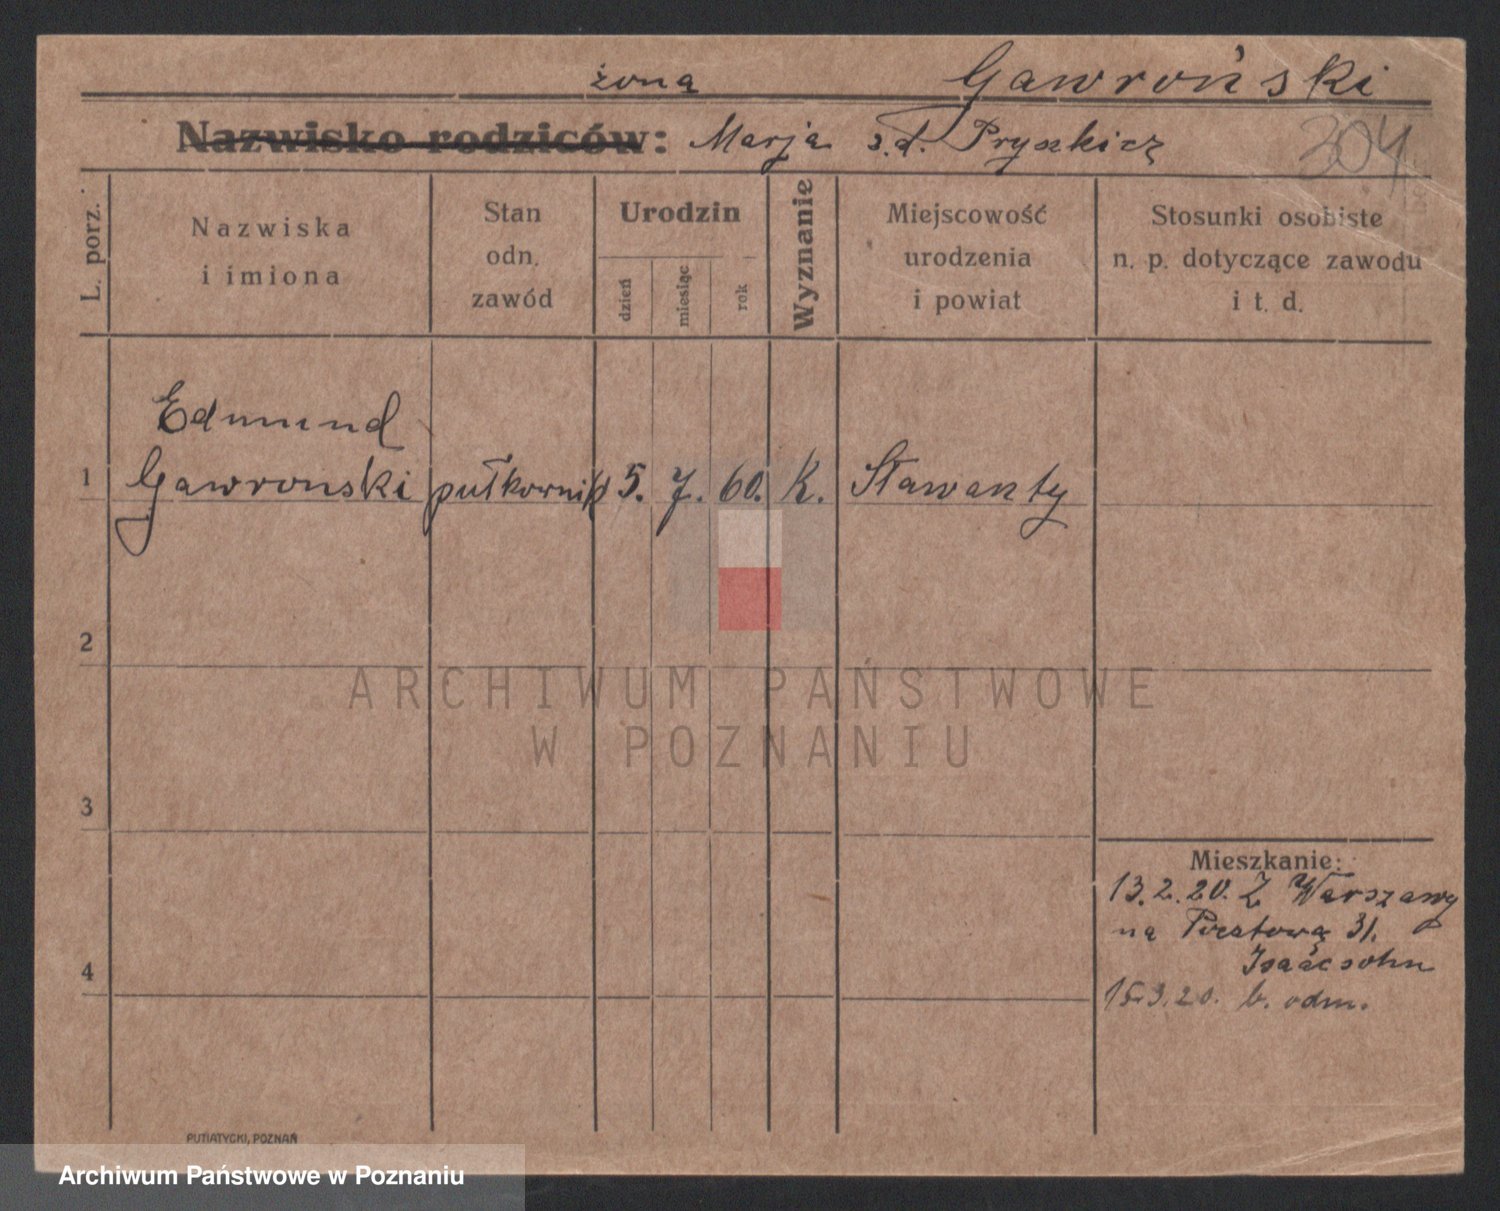 żona Gawroński
Nazwisko rodziców: Marja z.d. Pryszkicz
304
L. porz.
Nazwiska
i imiona
Stan
odn.
zawód
Urodzin
dzień
miesiąc
rok
Wyznanie
Miejscowość
urodzenia
i powiat
Stosunki osobiste
n. p. dotyczące zawodu
i t. d.
Edmund
1 Gawronski pułkownik 5. 7. 60. K. Sławanty
2
ARCHIWUM PAŃSTWOWE
W POZNANIU
3
Mieszkanie:
13.2.20. Z Warszawy
na Pocztową 31.
Isaacsohn
4
15.3.20. b. odm.
PUTIATYCKI, POZNAŃ
Archiwum Państwowe w Poznaniu